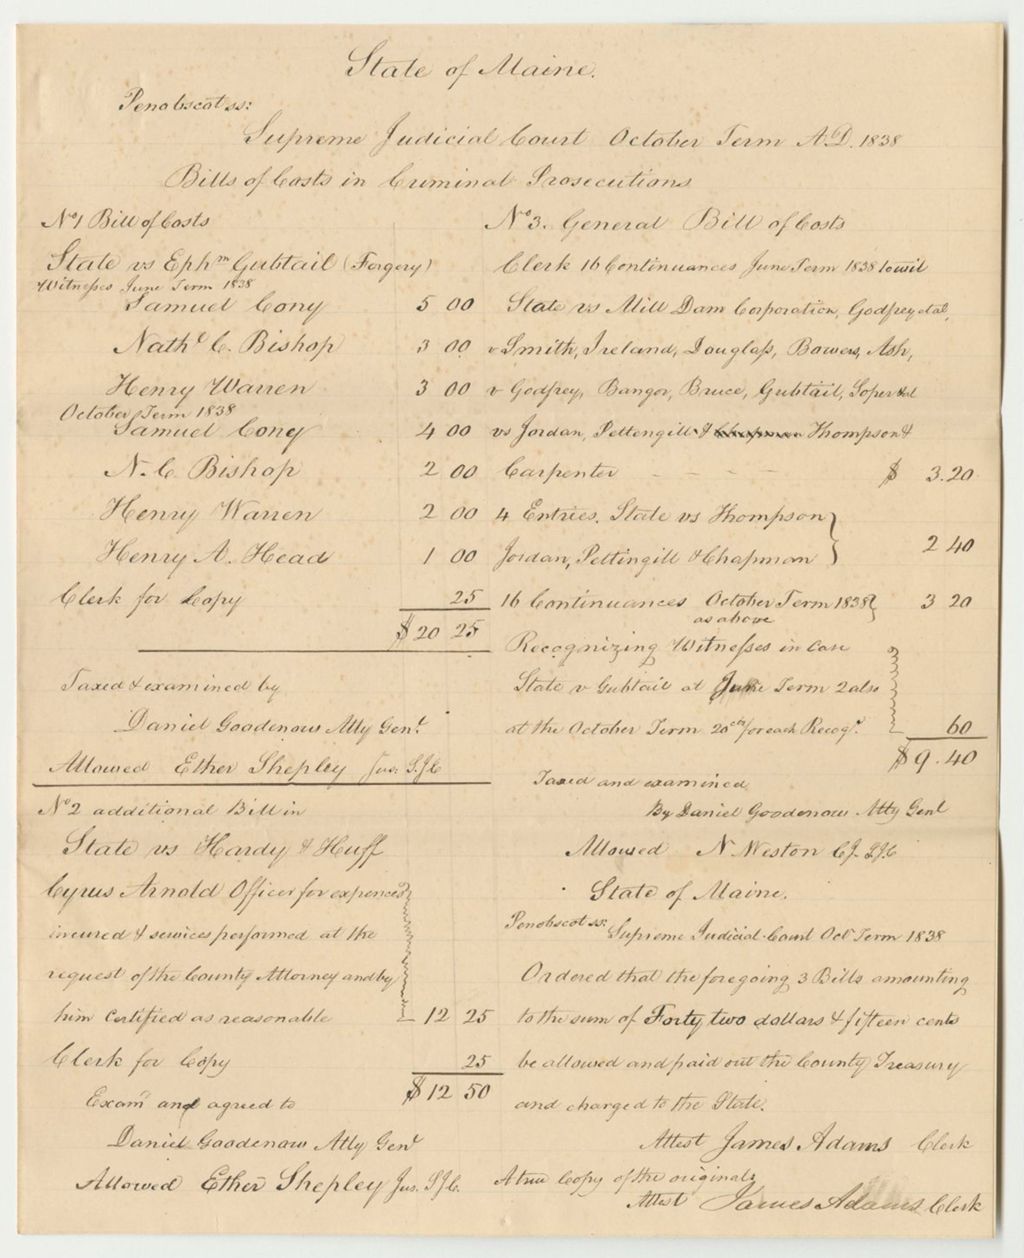 State of Maine.
Penobscot ss:
Supreme Judicial Court October Term A.D. 1838
Bills of Costs in Criminal Prosecutions
No 1 Bill of Costs
State vs Ephm Gubtail (Forgery)
Witnesses June Term 1838
Samuel Cony 5 00
Nathl C. Bishop 3 00
Henry Warren 3 00
October Term 1838
Samuel Cony 4 00
N. C. Bishop 2 00
Henry Warren 2 00
Henry A. Head 1 00
Clerk for Copy 25
$20 25
Taxed & examined by
Daniel Goodenow Atty Genl
Allowed Ether Shepley Jus. S.J.C
No 2 additional Bill in
State vs Hardy & Huff
Cyrus Arnold Officer for expences
incured & services performed at the
request of the County Attorney and by
him certified as reasonable 12 25
Clerk for Copy 25
$12 50
Examd and agreed to
Daniel Goodenow Atty Genl
Allowed Ether Shepley Jus. S.J.C.
No 3. General Bill of Costs
Clerk 16 Continuances June Term 1838 towit
State vs Mill Dam Corporation, Godfrey et al,
v Smith, Ireland, Douglass, Bowers, Ash,
v Godfrey, Bangor, Bruce, Gubtail, Soper et al
vs Jordan, Pettengill & Chapman Thompson &
Carpenter $ 3.20
4 Entries. State vs Thompson
Jordan, Pettingill & Chapman 2 40
16 Continuances October Term 1838 3 20
as above
Recognizing Witnesses in Case
State v Gubtail at June Term 2 also
at the October Term 20cts for each Recogr. 60
$9.40
Taxed and examined
By Daniel Goodenow Atty Genl
Allowed N Weston C.J. S.J.C
State of Maine.
Penobscot ss: Supreme Judicial Court Oct Term 1838
Ordered that the foregoing 3 Bills amounting
to the sum of Forty two dollars & fifteen cents
be allowed and paid out the County Treasury
and charged to the State.
Attest James Adams Clerk
A true Copy of the originals
Attest James Adams Clerk